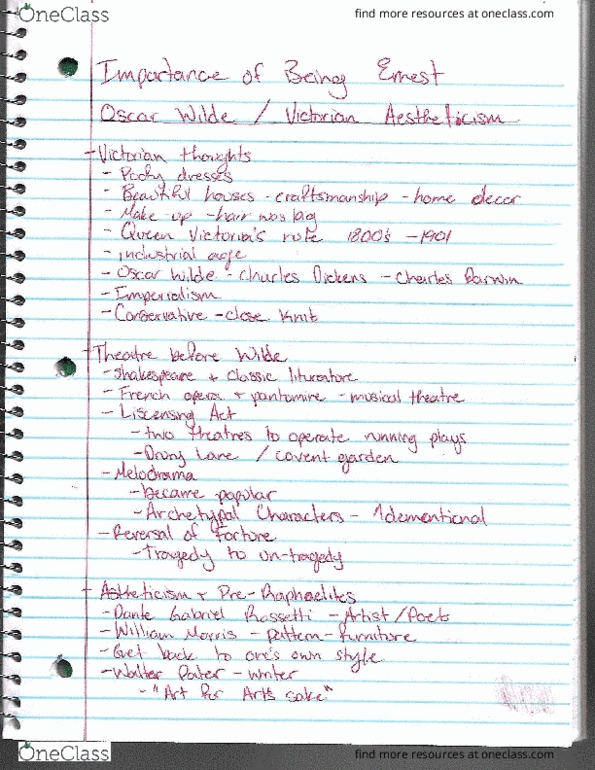 OneClass
find more resources at oneclass.com
Importance of Being Ernest
Oscar Wilde / Victorian Aestheticism
- Victorian thoughts
- Poofy dresses
- Beautiful houses - craftsmanship - home decor
- Make up - hair was big
- Queen Victoria's rule 1800's - 1901
- industrial age
- Oscar Wilde - Charles Dickens - Charles Darwin
- Imperialism
- Conservative - close knit
- Theatre before Wilde
- Shakespeare + classic liturature
- French opera + pantomime - musical theatre
- Liscensing Act
- two theatres to operate running plays
- Drury Lane / Covent garden
- Melodrama
- became popular
- Archetypal Characters - 1 dementional
- Reversal of fortune
- tragedy to un-tragedy
- Astheticism + Pre-Raphaelites
- Dante Gabriel Rossetti - Artist / Poets
- William Morris - pattern - furniture
- Get back to one's own style
- Walter Pater - writer
- "Art for Arts sake"
OneClass
find more resources at oneclass.com